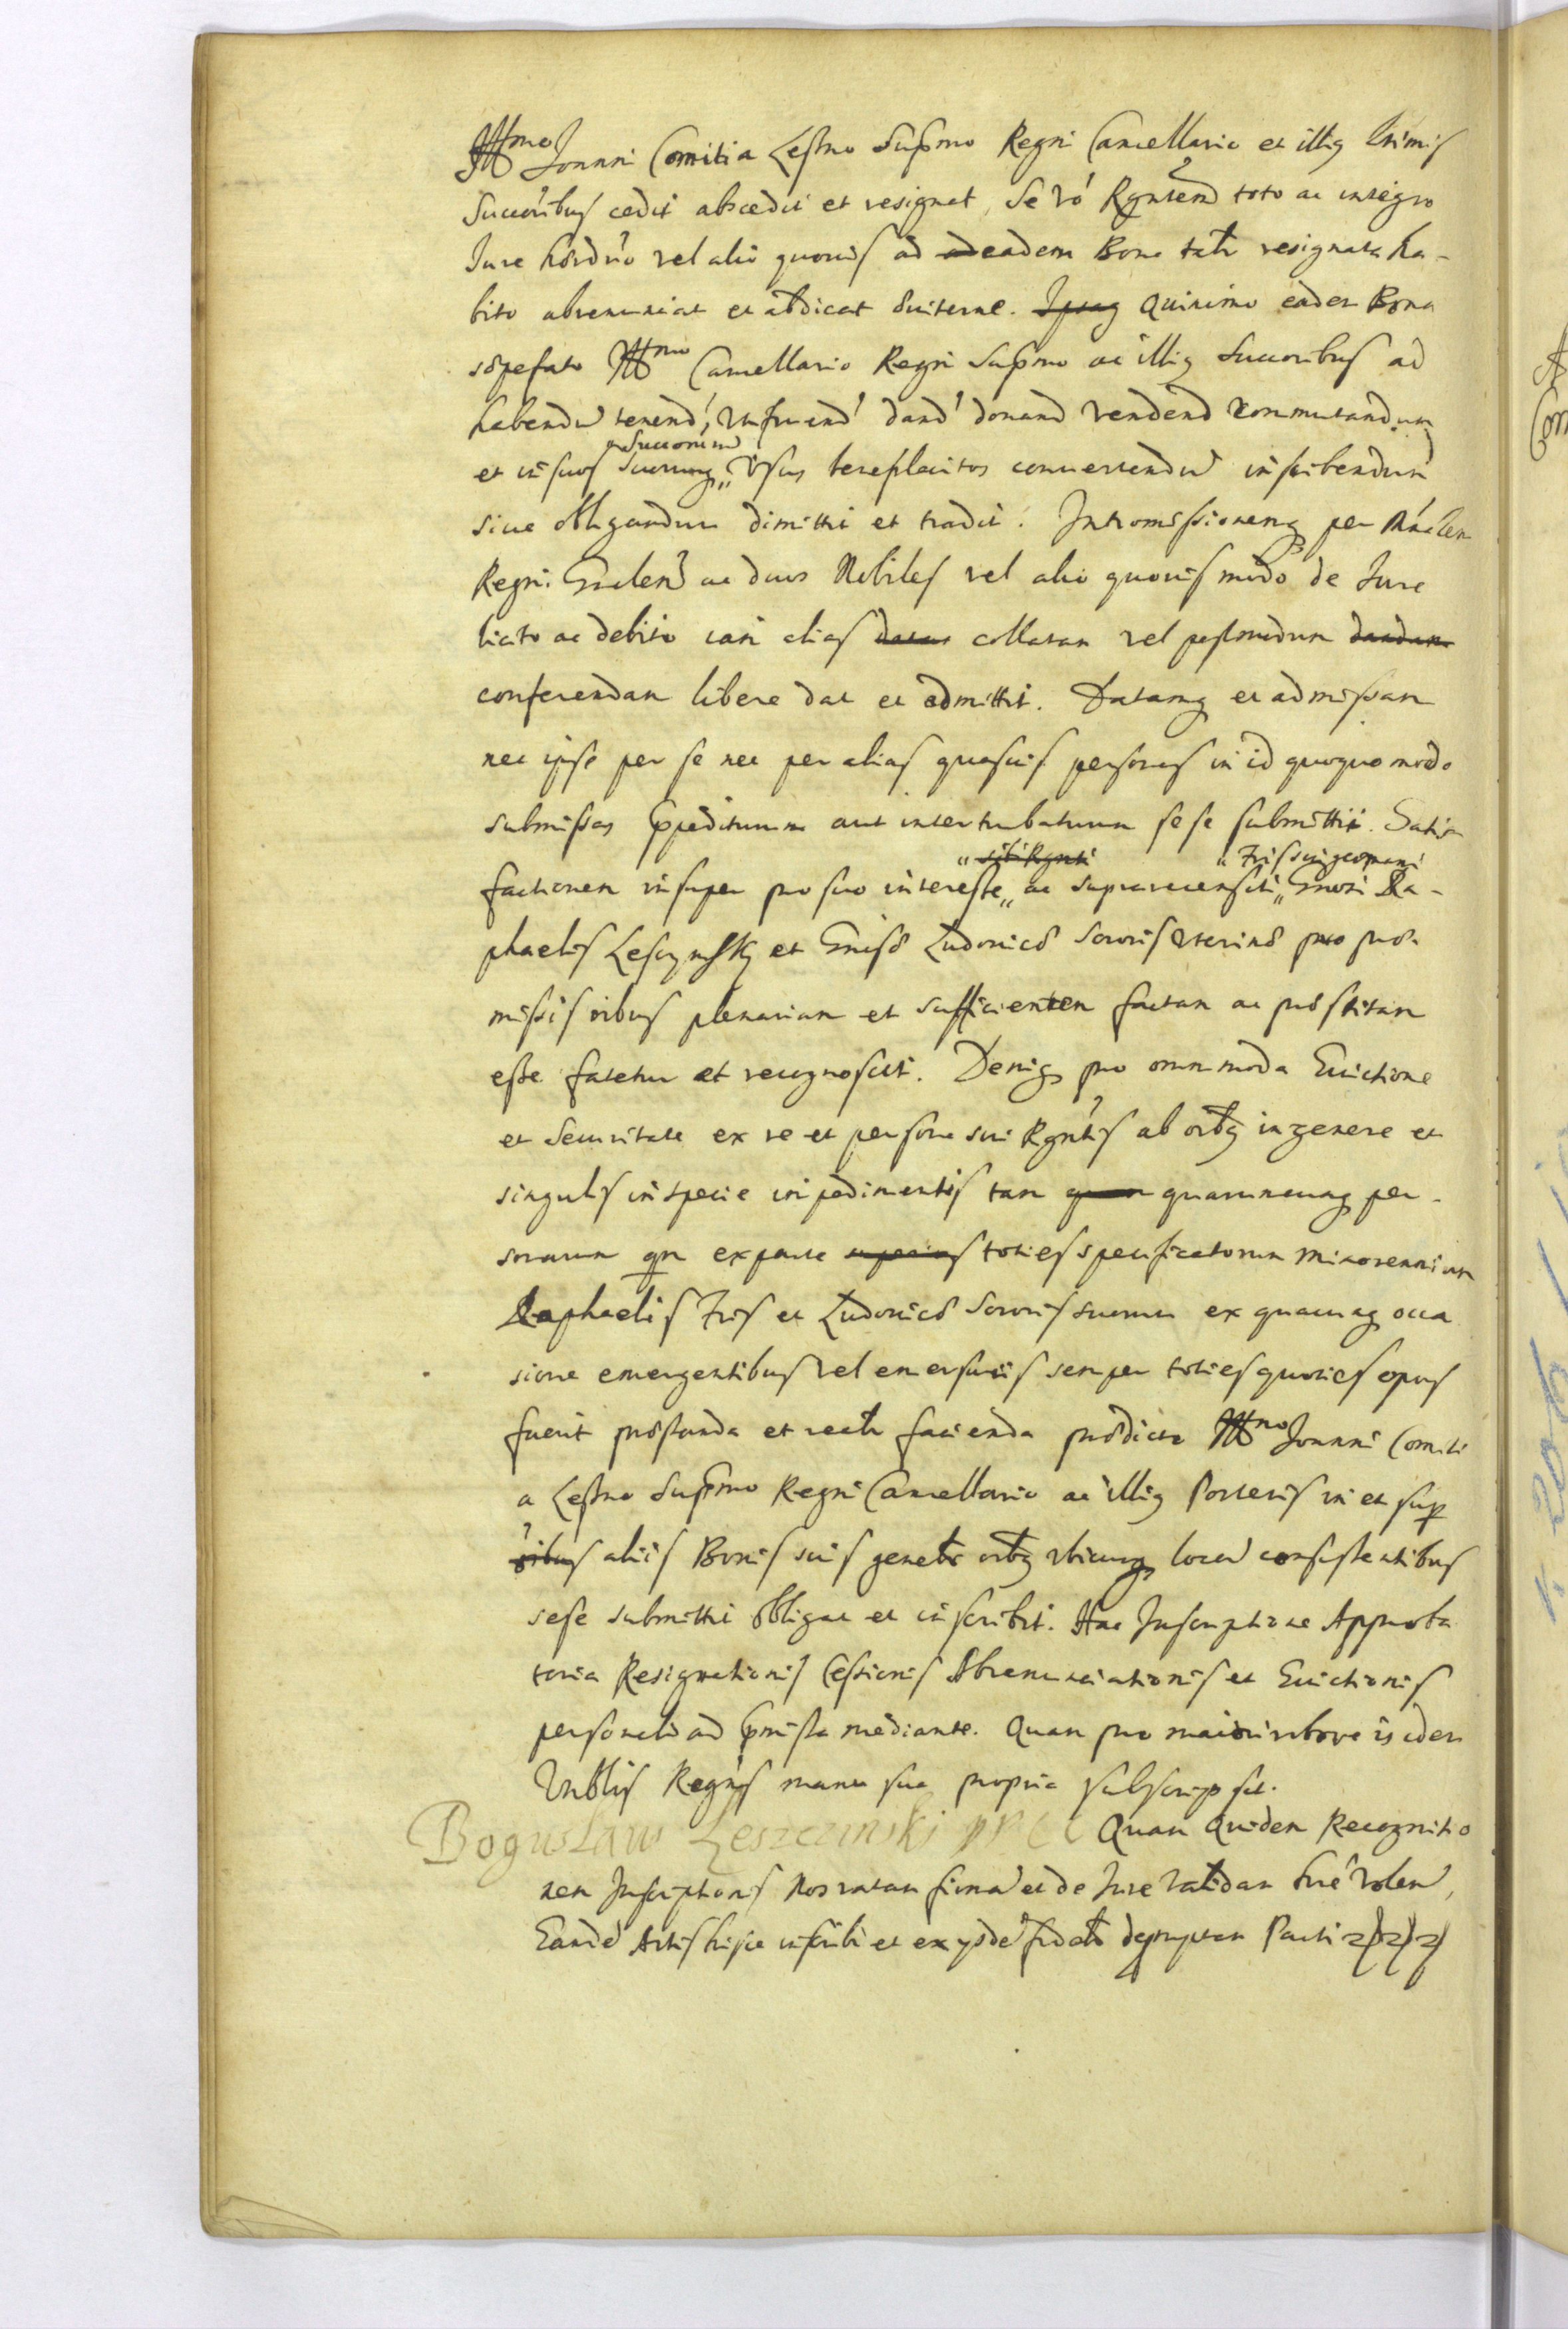 Illmo Joanni Comiti a Lesno Supmo Regni Cancellario et illiq
Succoribus cedit abscedit et resignat, Se vo Rgntem toto ac integro
Jure hordrio vel alio quovis ad ad eadem Bona talr resignata ha-
bito abrenunciat et abdicat duiterne. Ipsaq Quinimo eadem Bona
sæpefato Illmo Cancellario Regni Supmo ac illiq Succoribus ad
habendu tenend, Utifruend dand donand vendend commutandum
et in suos suorumq „ Usus beneplacitos convertendu inscribendum
Succorum
sive obligandum dimittit et tradit. Intromissionemq per Mnlem
Regni Gnalem ac duos Nobiles vel alio quovis modo de Jure
licito ac debito iam alias datam collatam vel postmodum dandam
conferendam libere dat et admittit. Datamq et admissam
nec ipse per se nec per alias quasvis personas in id quoquo modo
submissas Impediturum aut interturbaturum sese submittit. Satis
„ sibi Rgnti „ Fris sui germani
factionem insuper pro suo interesse „ ac suprarecensiti „ Gnosi Ra-
phaelis Lesczynsky et Gnisæ Ludovicæ Sororis Uterinæ pro præ
missis oibus plenariam et sufficientem factam ac præstitam
esse fatetur et recognoscit. Deniq pro omnimoda Evictione
et Securitate ex re et persona sui Rgntis ab oibq in genere et
singulis in specie impedimentis tam quam quarumcunq per-
sonarum qm ex parte superius toties specificatorum Minorennium
Raphaelis Fris et Ludovicæ Sororis suorum ex quacunq occa
sione emergentibus vel emersuris semper toties quoties opus
fuerit præstanda et realr facienda prædicto Illmo Joanni Comiti
a Lesno Supmo Regni Cancellario ac illiq Posteris in et sup
oibus aliis Bonis suis generalr oibq ubicunq locor consistentibus
sese submittit obligat et inscribit. Hac Inscriptione Approba
toria Resignationis Cessionis Abrenunciationis et Evictionis
personalr ad pmissa mediante. Quam pro maiori robore is idem
manu sua propria subscripsit.
Boguslaw Leszczinski Quam Quidem Recognitio
nem Inscptionis Nos ratam firma et de Jure validam
Eande Actis hisce inscribi et ex ysde Parti